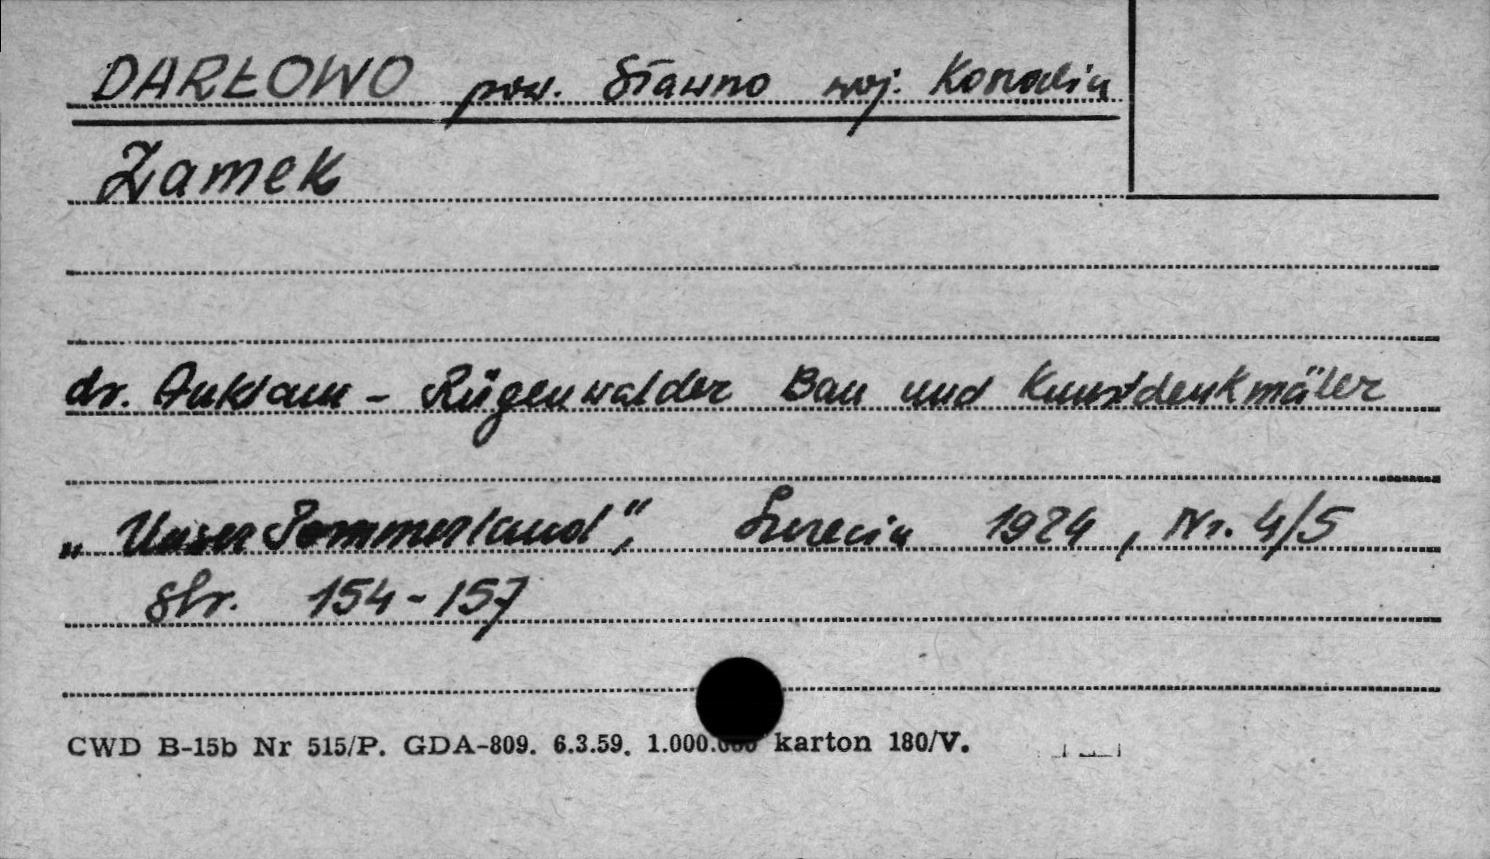 DARŁOWO pow. Sławno woj. Koszalin
Zamek
dr. Anklam - Rügenwalder Bau und Kunstdenkmäler
„Unser Pommerland", Szczecin 1924, Nr. 4/5
str. 154-157
CWD B-15b Nr 515/P. GDA-809. 6.3.59. 1.000.000 karton 180/V.